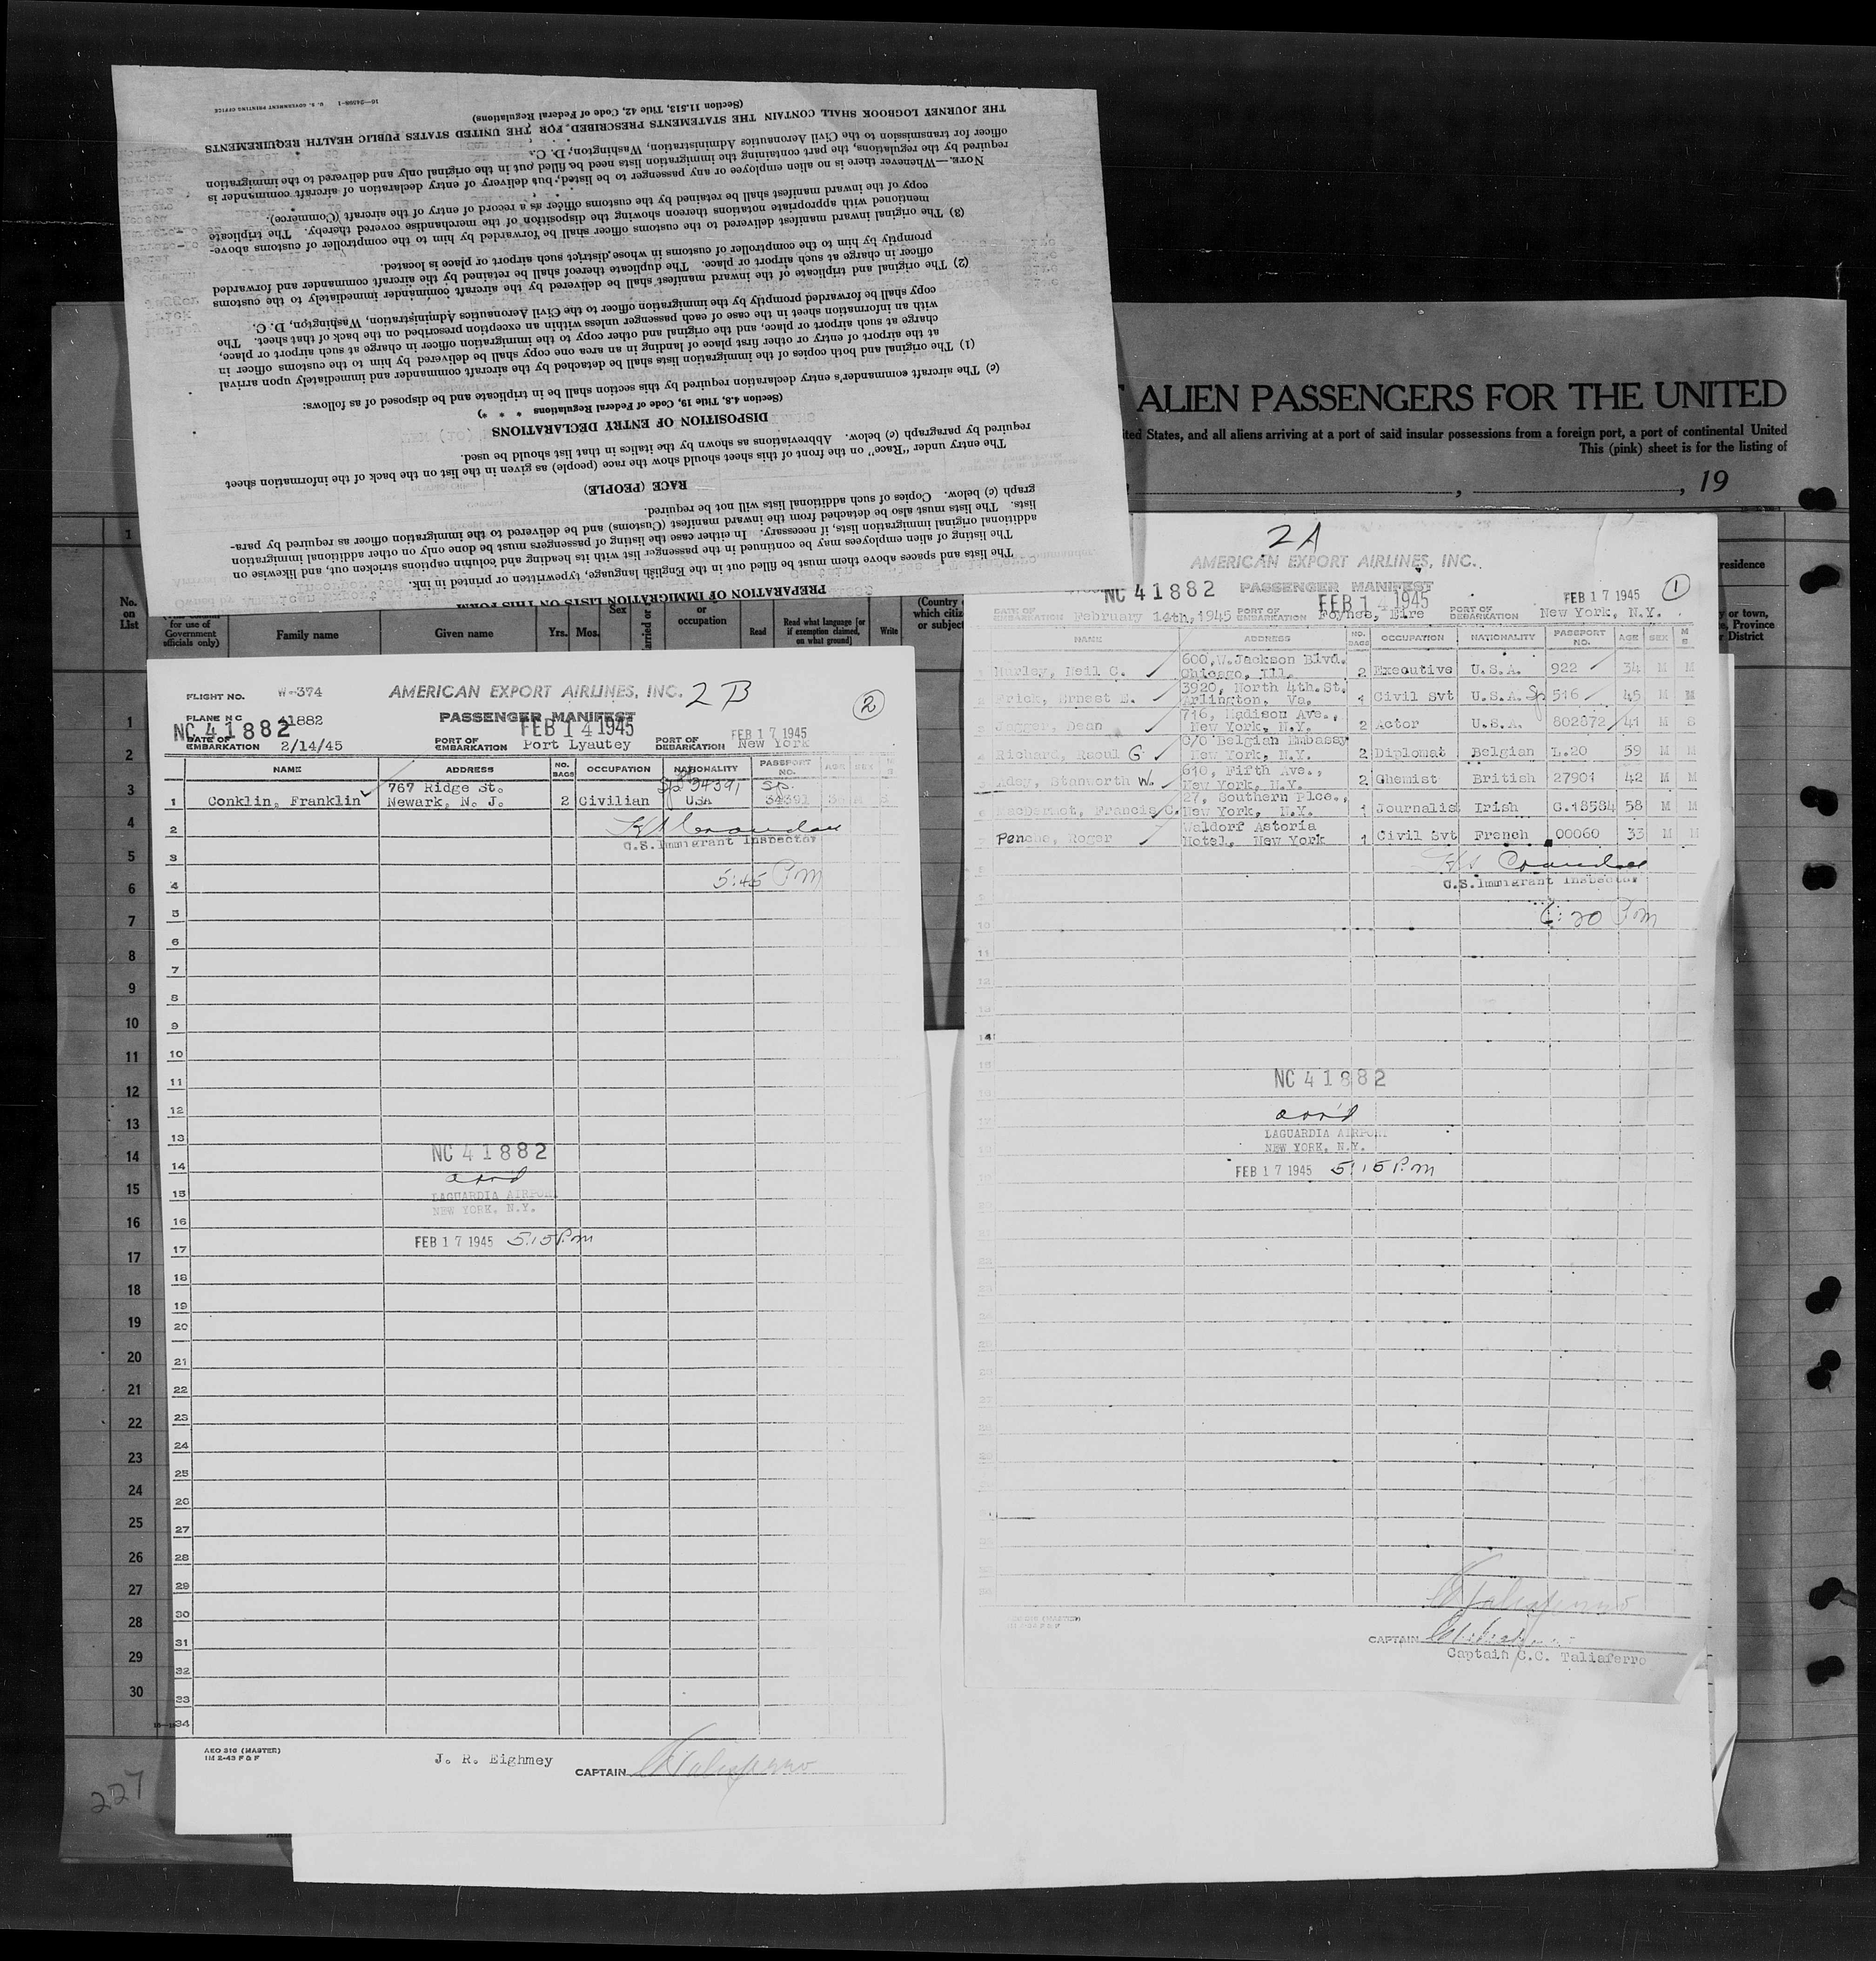 PREPARATION OF IMMIGRATION LISTS ON THIS FORM
The lists and spaces above them must be filled out in the English language, typewritten or printed in ink.
The listing of alien employees may be continued in the passenger list with its heading and column captions stricken out, and likewise on
additional original immigration lists, if necessary. In either case the listing of passengers must be done only on other additional immigration
lists. The lists must also be detached from the inward manifest (Customs) and be delivered to the immigration officer as required by para-
graph (c) below. Copies of such additional lists will not be required.
RACE (PEOPLE)
The entry under "Race" on the front of this sheet should show the race (people) as given in the list on the back of the information sheet
required by paragraph (c) below. Abbreviations as shown by the italics in that list should be used.
DISPOSITION OF ENTRY DECLARATIONS
(Section 4.8, Title 19, Code of Federal Regulations * * *)
(c) The aircraft commander's entry declaration required by this section shall be in triplicate and be disposed of as follows:
(1) The original and both copies of the immigration lists shall be detached by the aircraft commander and immediately upon arrival
at the airport of entry or other first place of landing in an area one copy shall be delivered by him to the customs officer in
charge at such airport or place, and the original and other copy to the immigration officer in charge at such airport or place,
with an information sheet in the case of each passenger unless within an exception prescribed on the back of that sheet. The
copy shall be forwarded promptly by the immigration officer to the Civil Aeronautics Administration, Washington, D. C.
(2) The original and triplicate of the inward manifest shall be delivered by the aircraft commander immediately to the customs
officer in charge at such airport or place. The duplicate thereof shall be retained by the aircraft commander and forwarded
promptly by him to the comptroller of customs in whose district such airport or place is located.
(3) The original inward manifest delivered to the customs officer shall be forwarded by him to the comptroller of customs above-
mentioned with appropriate notations thereon showing the disposition of the merchandise covered thereby. The triplicate
copy of the inward manifest shall be retained by the customs officer as a record of entry of the aircraft (Commerce).
NOTE.—Whenever there is no alien employee or any passenger to be listed, but delivery of entry declaration of aircraft commander is
required by the regulations, the part containing the immigration lists need be filled out in the original only and delivered to the immigration
officer for transmission to the Civil Aeronautics Administration, Washington, D. C.
THE JOURNEY LOGBOOK SHALL CONTAIN THE STATEMENTS PRESCRIBED FOR THE UNITED STATES PUBLIC HEALTH REQUIREMENTS
(Section 11.513, Title 42, Code of Federal Regulations)
16—24598-1 U. S. GOVERNMENT PRINTING OFFICE
ALIEN PASSENGERS FOR THE UNITED
ited States, and all aliens arriving at a port of said insular possessions from a foreign port, a port of continental United
This (pink) sheet is for the listing of
, , 19
1
residence
No. on List
for use of Government officials only)
Family name
Given name
Yrs.
Mos.
Sex
or occupation
Read
Read what language [or if exemption claimed, on what ground]
Write
(Country which or subject
y or town, Province District
1
2
3
4
5
6
7
8
9
10
11
12
13
14
15
16
17
18
19
20
21
22
23
24
25
26
27
28
29
30
227
FLIGHT NO. W-374 AMERICAN EXPORT AIRLINES, INC. 2B 2
PLANE NC 41882 PASSENGER MANIFEST
NC 41882 FEB 14 1945 FEB 17 1945
DATE OF EMBARKATION 2/14/45 PORT OF EMBARKATION Port Lyautey PORT OF DEBARKATION New York
NAME ADDRESS NO. BAGS OCCUPATION NATIONALITY PASSPORT NO. AGE SEX M S
767 Ridge St. Sp 34391 Sp.
1 Conklin, Franklin Newark, N. J. 2 Civilian USA 34391
2
U.S. Immigrant Inspector
3
4 5:45 Pm
5
6
7
8
9
10
11
12
13 NC 41882
14 arr'd
15 LAGUARDIA AIRPORT
NEW YORK, N.Y.
16
17 FEB 17 1945 5:15 P.m
18
19
20
21
22
23
24
25
26
27
28
29
30
31
32
33
34
AEO 316 (MASTER)
1M 2-43 F & F
J. R. Eighmey CAPTAIN CC Taliaferro
2A
AMERICAN EXPORT AIRLINES, INC.
NC 41882 PASSENGER MANIFEST FEB 17 1945 1
FEB 14 1945
DATE OF EMBARKATION February 14th, 1945 PORT OF EMBARKATION Foynes, Eire PORT OF DEBARKATION New York, N.Y.
NAME ADDRESS NO. BAGS OCCUPATION NATIONALITY PASSPORT NO. AGE SEX M S
600, W. Jackson Blvd.
Hurley, Neil C. Chicago, Ill. 2 Executive U.S.A. 922 34 M M
3920, North 4th. St.
Brick, Ernest E. Arlington, Va. 1 Civil Svt U.S.A. Sp 516 45 M M
716, Madison Ave.,
Jagger, Dean New York, N.Y. 2 Actor U.S.A. 802672 41 M S
C/O Belgian Embassy
Richard, Raoul G. New York, N.Y. 2 Diplomat Belgian L.20 59 M M
610, Fifth Ave.,
Stanworth W. New York, N.Y. 2 Chemist British 27901 42 M M
27, Southern Plce.,
MacDermot, Francis C. New York, N.Y. 1 Journalist Irish G.18584 58 M M
Waldorf Astoria
Roger Hotel, New York 1 Civil Svt French 00060 33 M M
U.S. Immigrant Inspector
6:20 Pm
NC 41882
arr'd
LAGUARDIA AIRPORT
NEW YORK, N.Y.
FEB 17 1945 5:15 P.m
CC Taliaferro
CAPTAIN
Captain C.C. Taliaferro